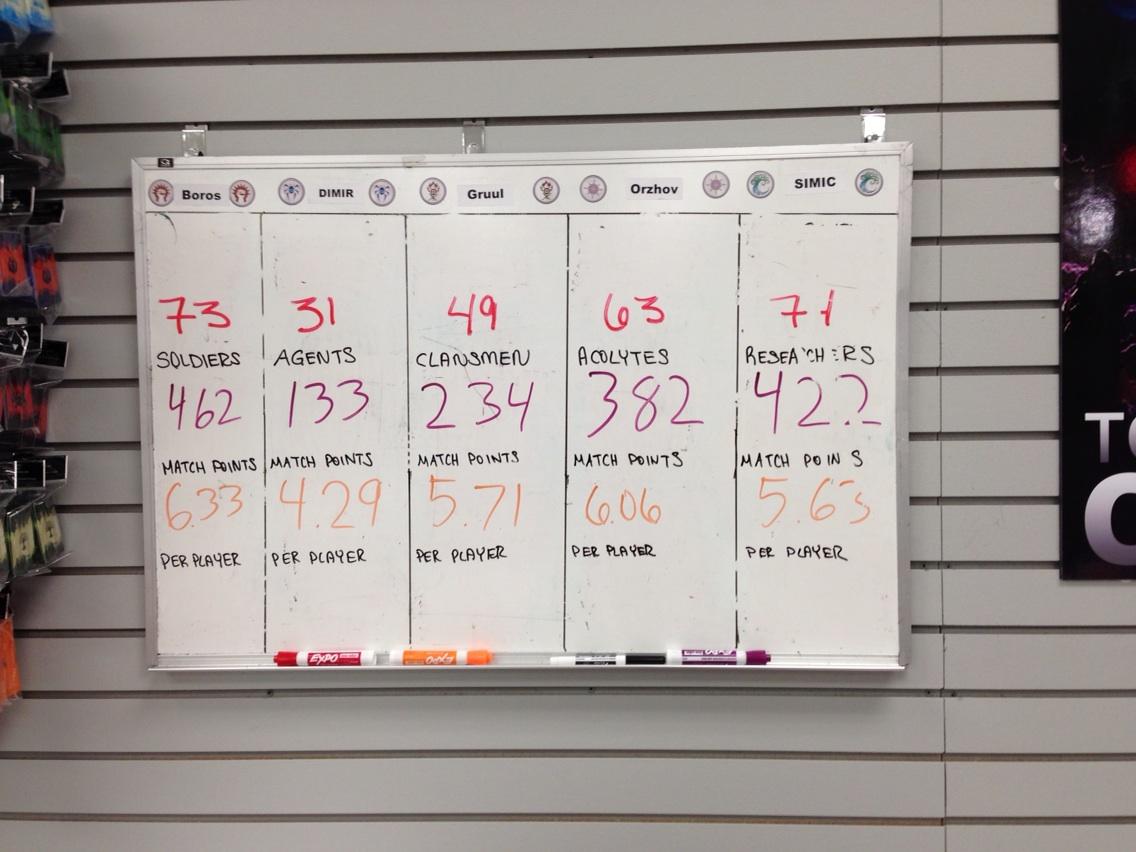 Boros DIMIR Gruul Orzhov SIMIC
73 31 49 63 71
SOLDIERS AGENTS CLANSMEN ACOLYTES RESEA CH RS
462 133 234 382 422
MATCH POINTS MATCH POINTS MATCH POINTS MATCH POINTS MATCH POIN S
6.33 4.29 5.71 6.06 5.63
PER PLAYER PER PLAYER PER PLAYER PER PLAYER PER PLAYER
EXPO